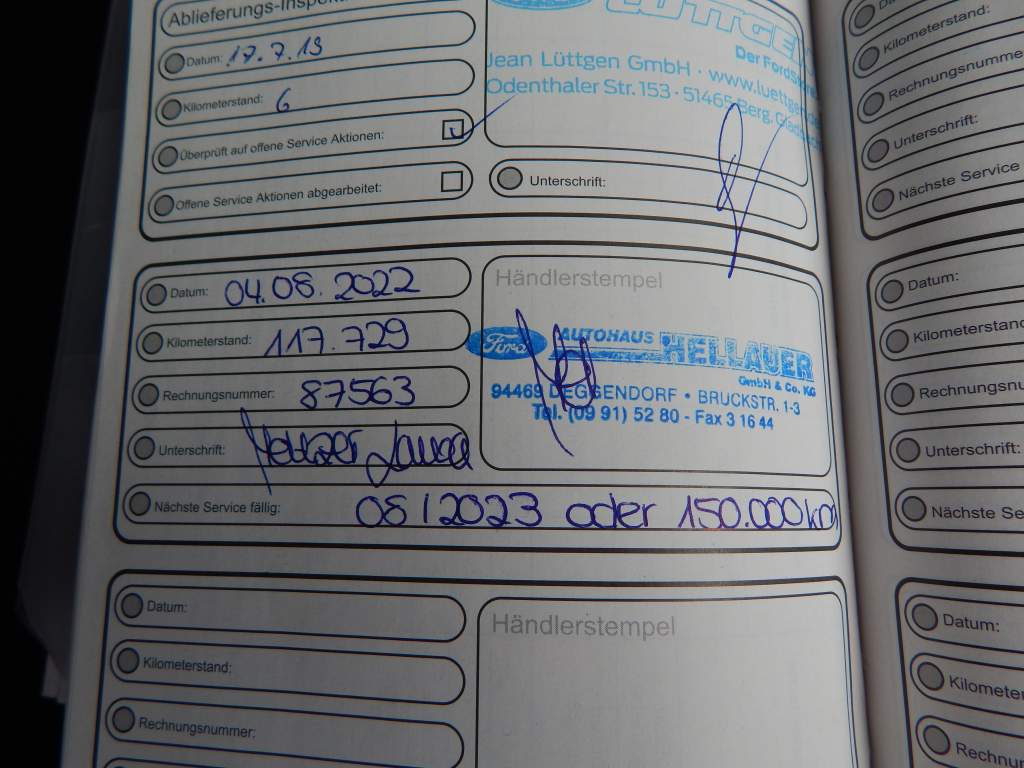 Ablieferungs-Inspek
Datum: 17.7.19
Kilometerstand: 6
Überprüft auf offene Service Aktionen:
Offene Service Aktionen abgearbeitet:
LÜTTGEN
Der Ford
Jean Lüttgen GmbH · www.luettgen
Odenthaler Str. 153 · 51465 Berg. Gladb
Unterschrift:
Datum: 04.08.2022
Kilometerstand: 117.729
Rechnungsnummer: 87563
Unterschrift:
Nächste Service fällig: 08/2023 oder 150.000km
Händlerstempel
Ford AUTOHAUS HELLAUER
GmbH & Co. KG
94469 DEGGENDORF • BRUCKSTR. 1-3
Tel. (09 91) 52 80 - Fax 3 16 44
Datum:
Kilometerstand:
Rechnungsnummer:
Händlerstempel
Kilometerstand:
Rechnungsnumme
Unterschrift:
Nächste Service
Datum:
Kilometerstand
Rechnungsnu
Unterschrift:
Nächste Se
Datum:
Kilometer
Rechnu